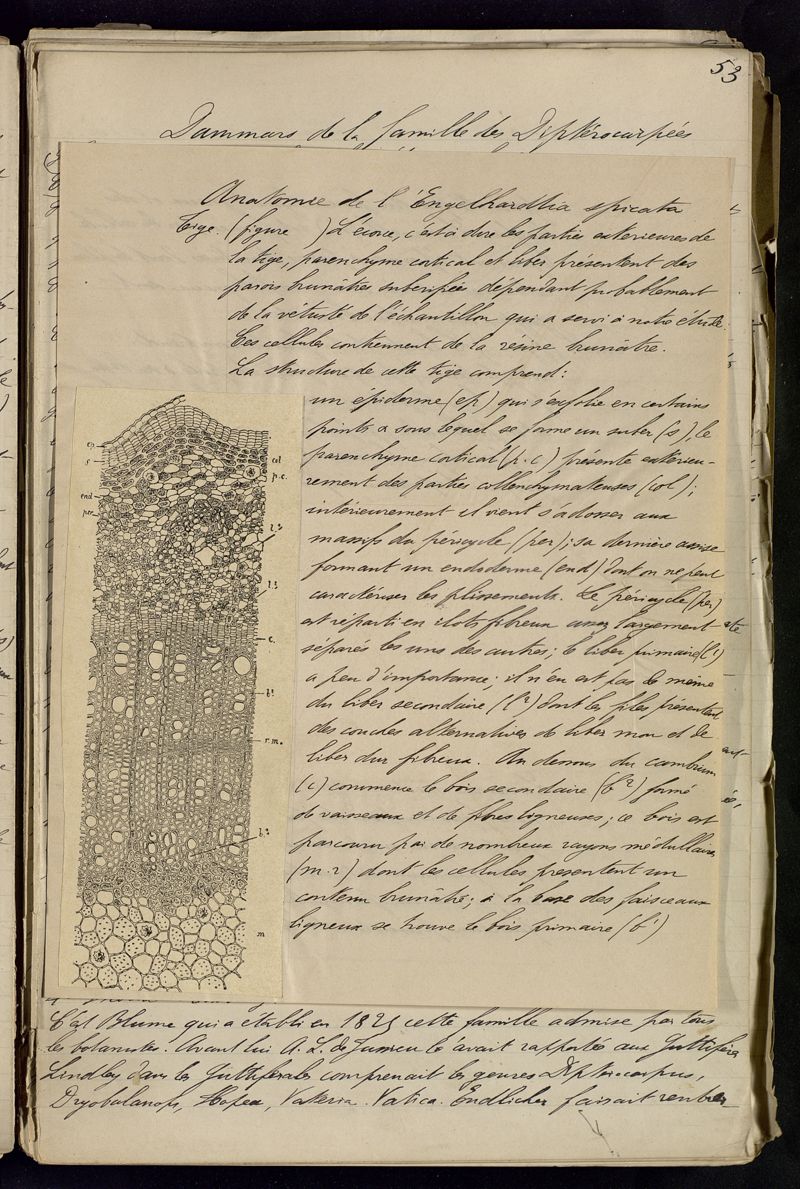 53
Dammars de la famille des Diptérocarpées
Anatomie de l'Engelhardtia spicata
Tige. (figure ) L'écorce, c'est à dire les parties extérieures de
la tige, parenchyme cortical et liber présentent des
parois brunâtres subérifiées dépendant probablement
de la vétusté de l'échantillon qui a servi à notre étude.
Ces cellules contiennent de la résine brunâtre.
La structure de cette tige comprend:
un épiderme (ep.) qui s'exfolie en certains
points & sous lequel se forme un suber (s), le
parenchyme cortical (p.c) présente extérieu-
rement des parties collenchymateuses (col);
intérieurement il vient s'adosser aux
massifs du péricycle (per); sa dernière assise
formant un endoderme (end) dont on ne peut
caractériser les plissements. Le péricycle (per)
est réparti en ilots fibreux assez largement
séparés les uns des autres; le liber primaire (l1)
a peu d'importance; il n'en est pas de même
du liber secondaire (l2) dont les files présentent
des couches alternatives de liber mou et de
liber dur fibreux. Au dessous du cambium
(c) commence le bois secondaire (b2) formé
de vaisseaux et de fibres ligneuses; ce bois est
parcouru par de nombreux rayons médullaires
(m.r) dont les cellules présentent un
contenu brunâtre; à la base des faisceaux
ligneux se trouve le bois primaire (b1)
ep
s
end
per
col
p.c.
c.
r.m.
m
C'est Blume qui a établi en 1825 cette famille admise par tous
les botanistes. Avant lui A. L. de Jussieu l'avait rapportée aux Guttifères
Lindley dans les Guttiférales comprenait les genres Dipterocarpus,
Dryobalanops, Hopea, Vateria. Vatica. Endlicher faisait rentrer